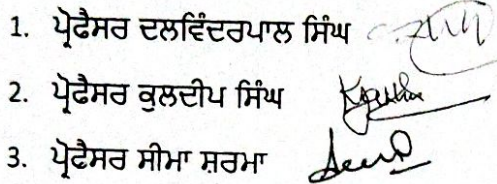 1. ਪ੍ਰੋਫੈਸਰ ਦਲਵਿੰਦਰਪਾਲ ਸਿੰਘ
2. ਪ੍ਰੋਫੈਸਰ ਕੁਲਦੀਪ ਸਿੰਘ
3. ਪ੍ਰੋਫੈਸਰ ਸੀਮਾ ਸ਼ਰਮਾ